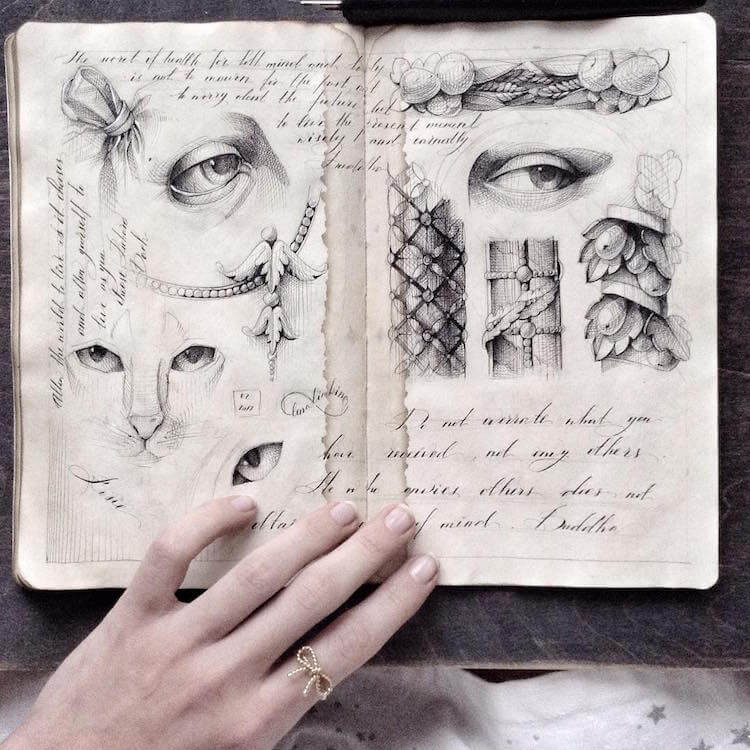 The secret of health for both mind and body
is not to mourn for the past, not
to worry about the future, but
to live the present moment
wisely and earnestly
Buddha
Allow the world to live as it chooses,
and allow yourself to
live as you
choose
Do not overrate what you
have received, nor envy others
He who envies others does not
of mind. Buddha